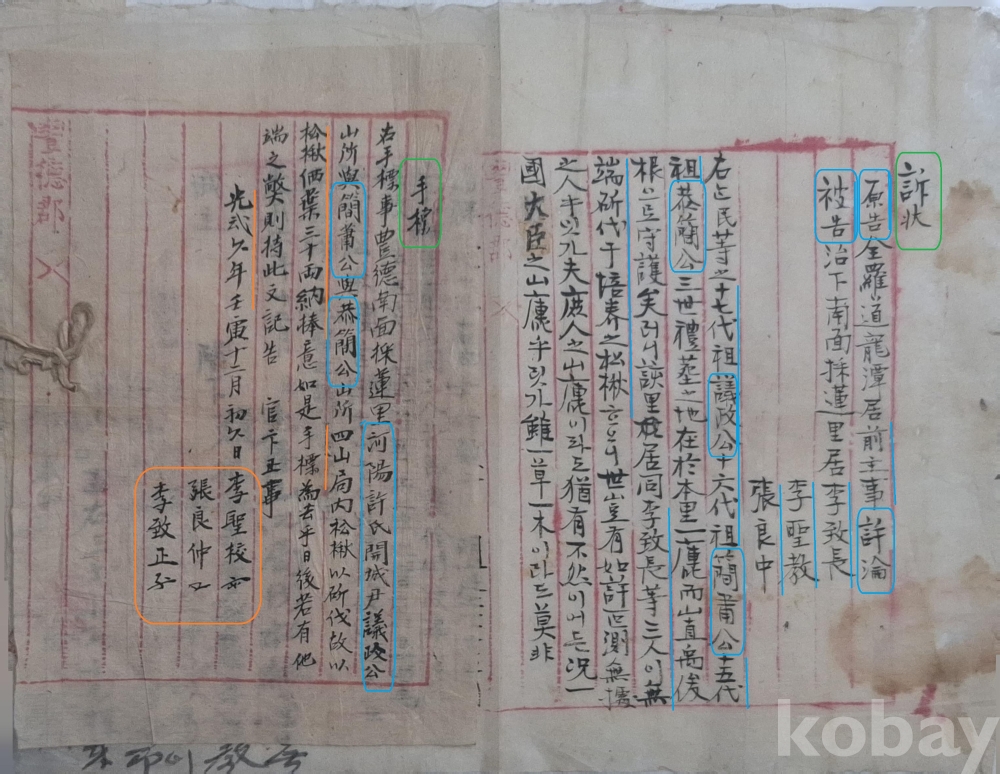 訴狀
原告全羅道龍潭居前主事許淪
被告治下南面採蓮里居李致長
李聖教
張良中
右은民等之十七代祖議政公十六代祖簡肅公十五代
祖恭簡公三世禮葬之地在於本里一麓而山直爲後
根으로守護矣러니該里居同李致長等三人이無
端斫伐于培養之松楸하오니世豈有如許叵測無據
之人乎잇가夫庶人之山麓이라도猶有不然이어든況一
國大臣之山麓乎잇가雖一草一木이라도莫非
手標
右手標事豊德南面採蓮里河陽許氏開城尹議政公
山所與簡肅公與恭簡公山所四山局內松楸以斫伐故以
松楸価葉三十両納捧意如是手標為去乎日後若有他
端之弊則持此文記告 官卞正事
光武六年壬寅十二月初六日李聖校
張良仲
李致正
豐德郡
kobay